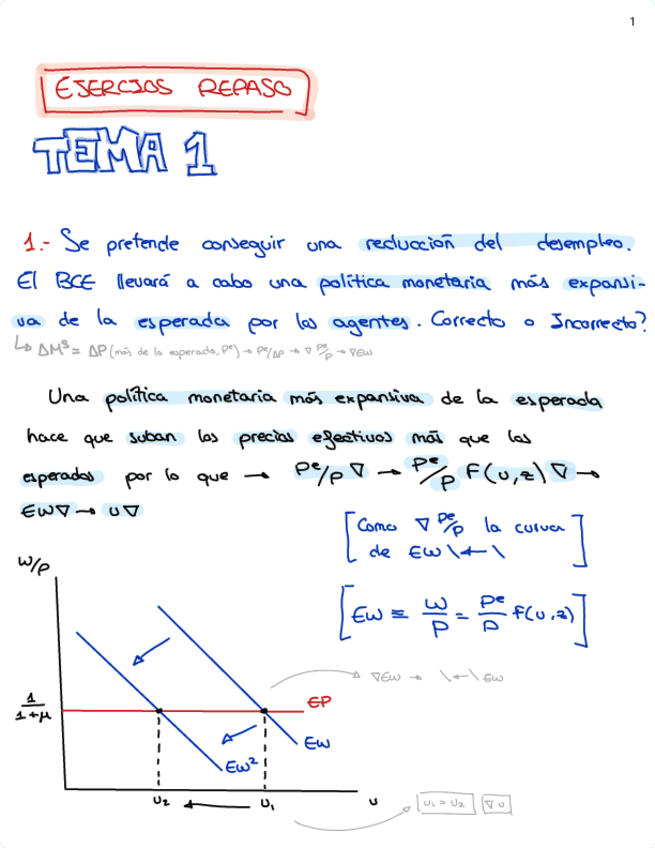 1
EJERCIOS REPASO
TEMA 1
1.- Se pretende conseguir una reducción del desempleo.
El BCE llevará a cabo una política monetaria más expansi-
va de la esperada por los agentes. Correcto o Incorrecto?
↳ ΔMˢ = ΔP (más de lo esperado, Pᵉ) → Pᵉ/ΔP → ∇ Pᵉ/P → ∇EW
Una política monetaria más expansiva de la esperada
hace que suban los precios efectivos más que los
esperados por lo que → Pᵉ/P ∇ → Pᵉ/P F(u,z) ∇ →
EW∇ → U∇
[Como ∇ Pᵉ/P la curva
de EW \←\]
W/P
[EW = W/P = Pᵉ/P F(u,z)]
∇EW → \←\ EW
1/1+μ
EP
EW
EW²
U₂ ← U₁ U
U₁ > U₂ ∇U